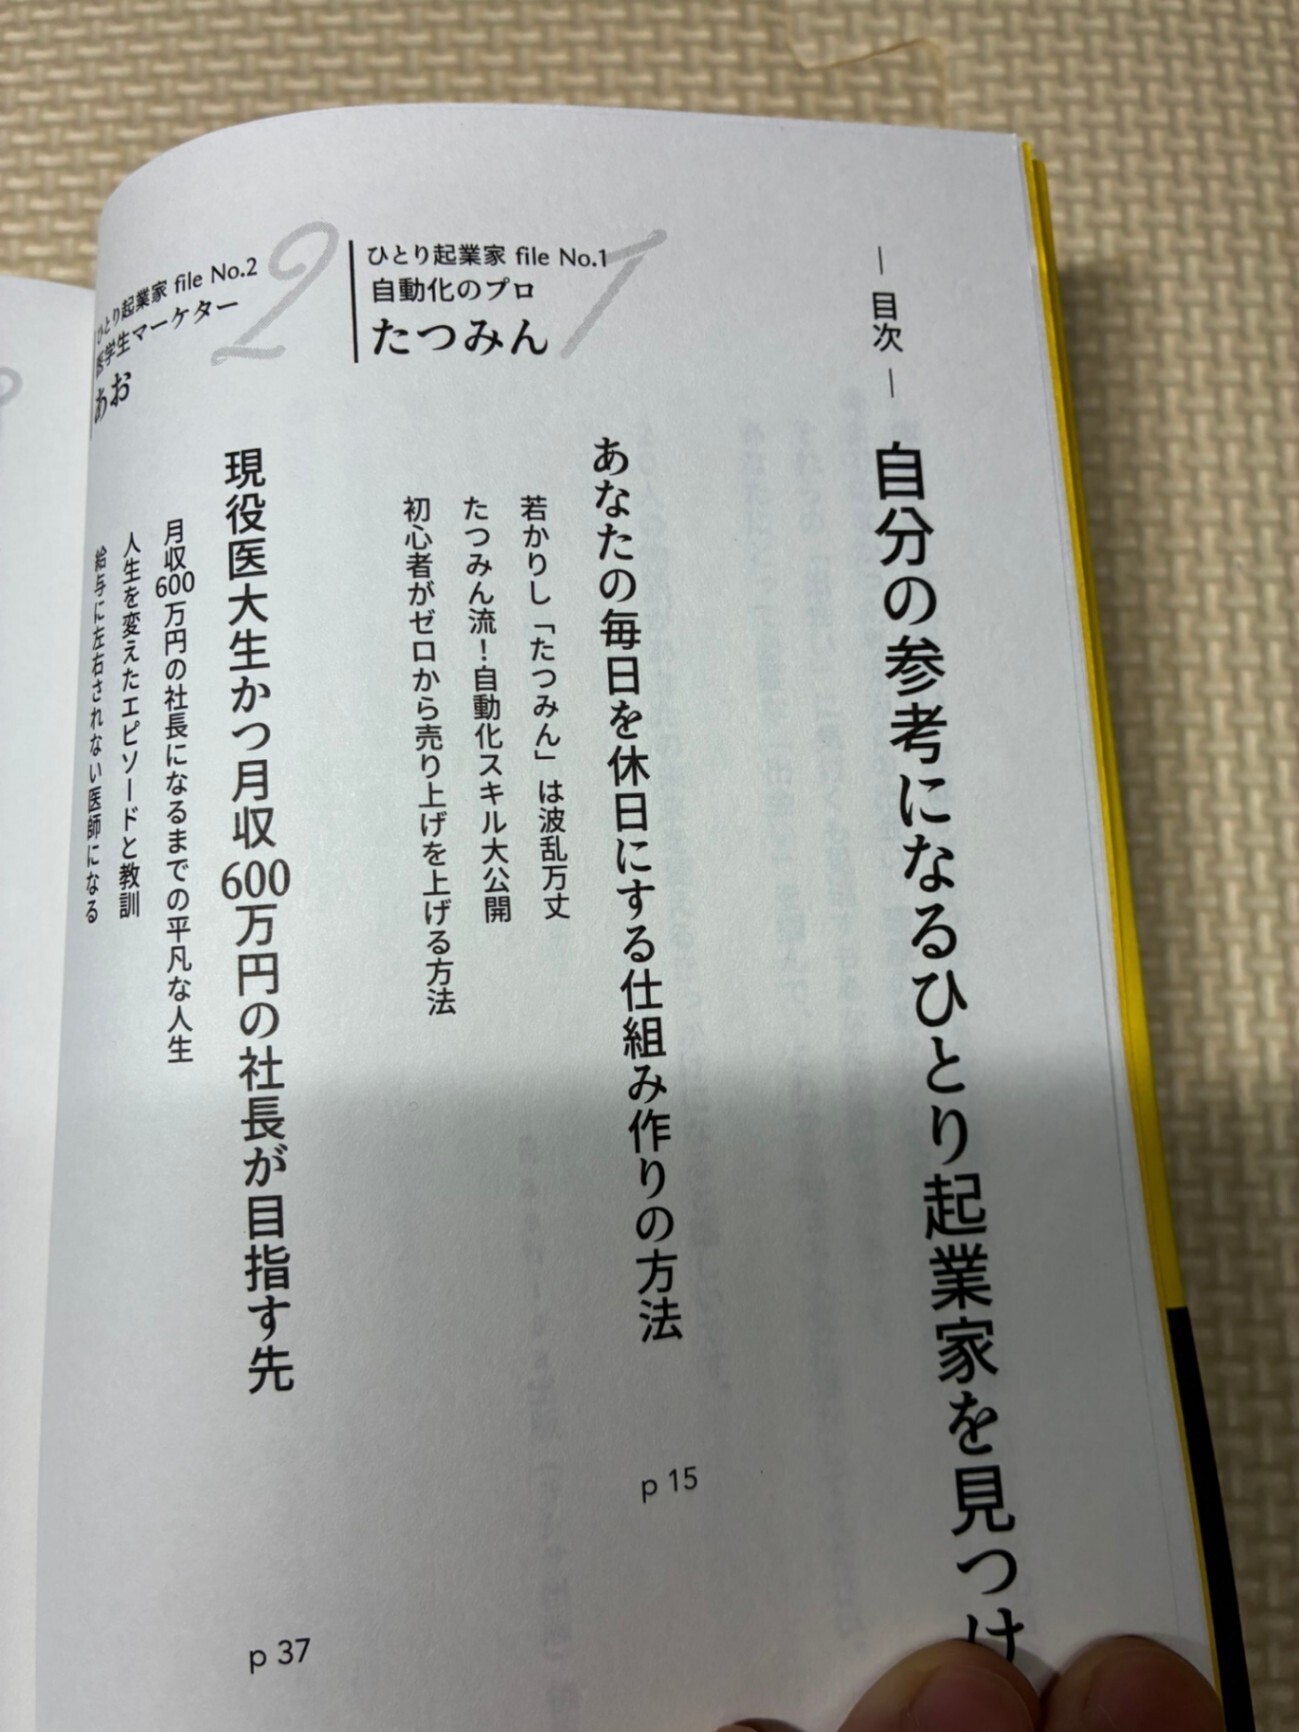 ― 目次 ―
自分の参考になるひとり起業家を見つけ
1
ひとり起業家 file No.1
自動化のプロ
たつみん
あなたの毎日を休日にする仕組み作りの方法
p 15
若かりし「たつみん」は波乱万丈
たつみん流！自動化スキル大公開
初心者がゼロから売り上げを上げる方法
2
ひとり起業家 file No.2
医学生マーケター
あお
現役医大生かつ月収600万円の社長が目指す先
p 37
月収600万円の社長になるまでの平凡な人生
人生を変えたエピソードと教訓
給与に左右されない医師になる